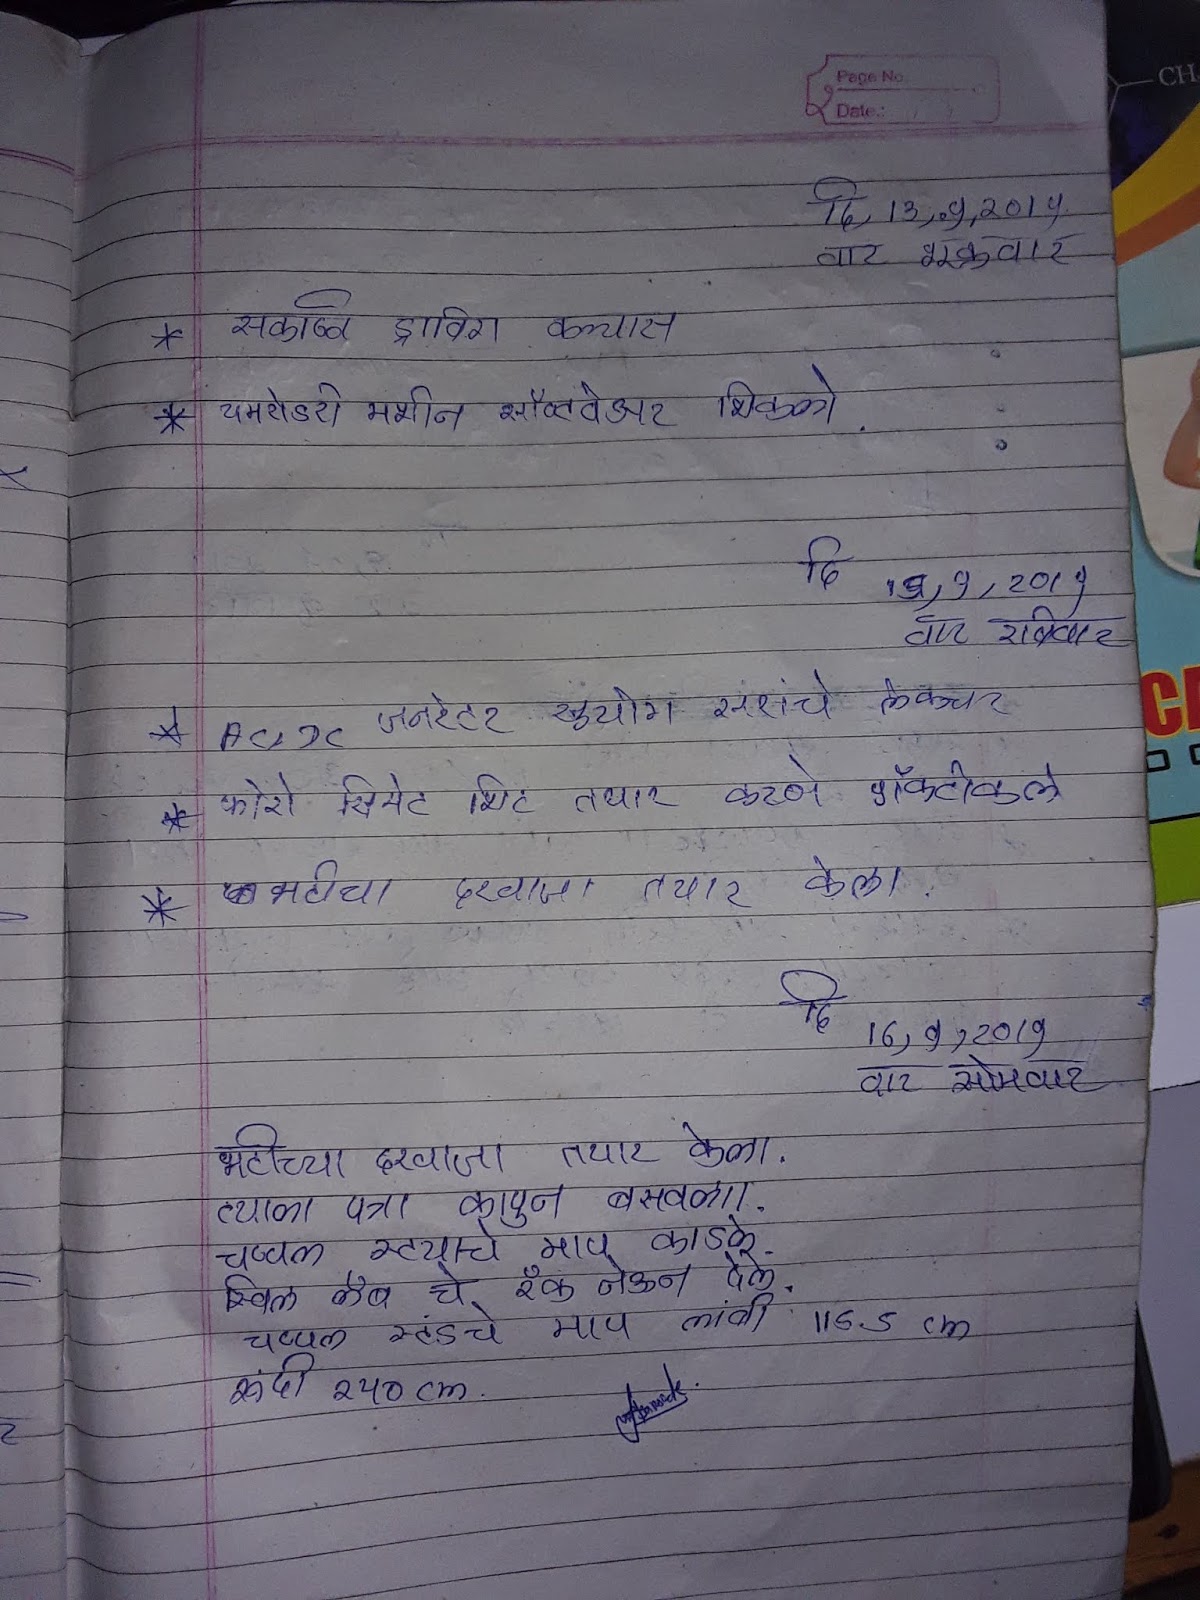 Page No.
Date.:
CH
दि, 13,9,2019
वार शुक्रवार
* ड्राविंग क्लास
* यमरोडरी मशीन सॉप्तवेअर शिकलो.
दि
15, 9, 2019
वार रविवार
* AC, DC जनरेटर सुयोग सरांचे लेक्चर
* फेरो सिमेट शिट तयार करणे प्रॅक्टीकले
* भटीचा दरवाजा तयार केला.
दि
16, 9, 2019
वार सोमवार
भटीच्या दरवाजा तयार केला.
त्याला पत्रा कापुन बसवला.
चप्पल स्टयाचे माप काडले.
स्विल लॅब चे रॅक नेऊन देले.
चप्पल स्टंडचे माप लांबी 115.5 cm
रुंदी 240 cm.